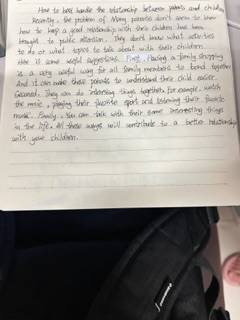 How to best handle the relationship between parents and children
Recently, the problem of Many parents don't seem to know
how to keep a good relationship with their children has been
brought to public attention. They don't know what activities
to do or what topics to talk about with their children.
Here is some useful suggestions. First, Having a family shopping
is a very useful way for all family members to bond together.
And it can make these parents to understand their child easier.
Second, They can do interesting things together, for example, watch
the movie, playing their favorite sport and listening their favorite
music. Finally, You can talk with their some interesting things
in the life. All these ways will contribute to a better relationship
with your children.